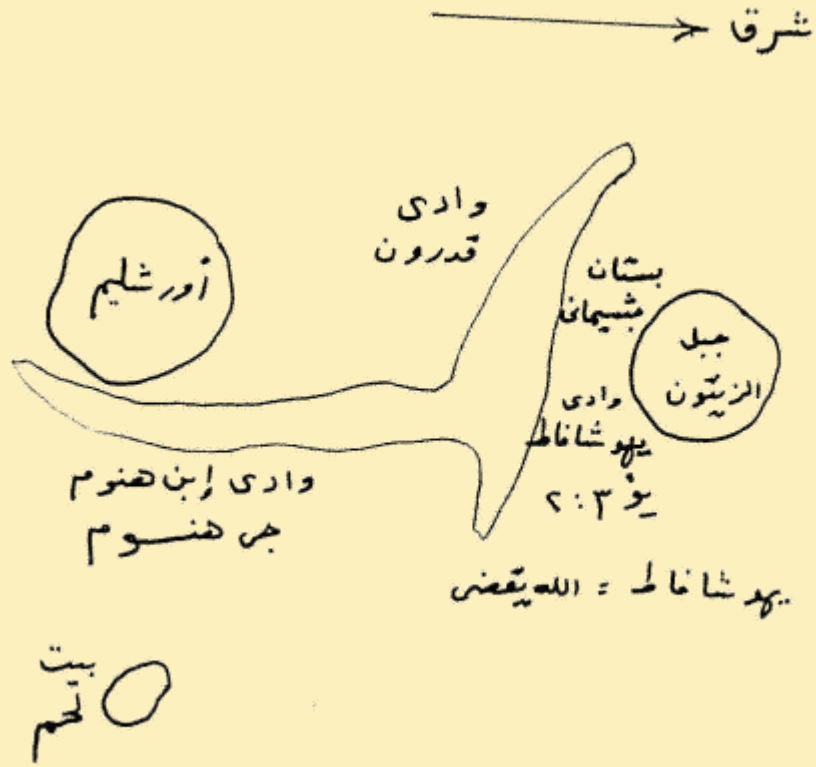 شرق
وادى
قدرون
أورشليم
بستان
جثسيمانى
جبل
الزيتون
وادى
يهوشافاط
يؤ ٣ : ٢
وادى إبن هنوم
جى هنوم
يهوشافاط = الله يقضى
بيت
لحم